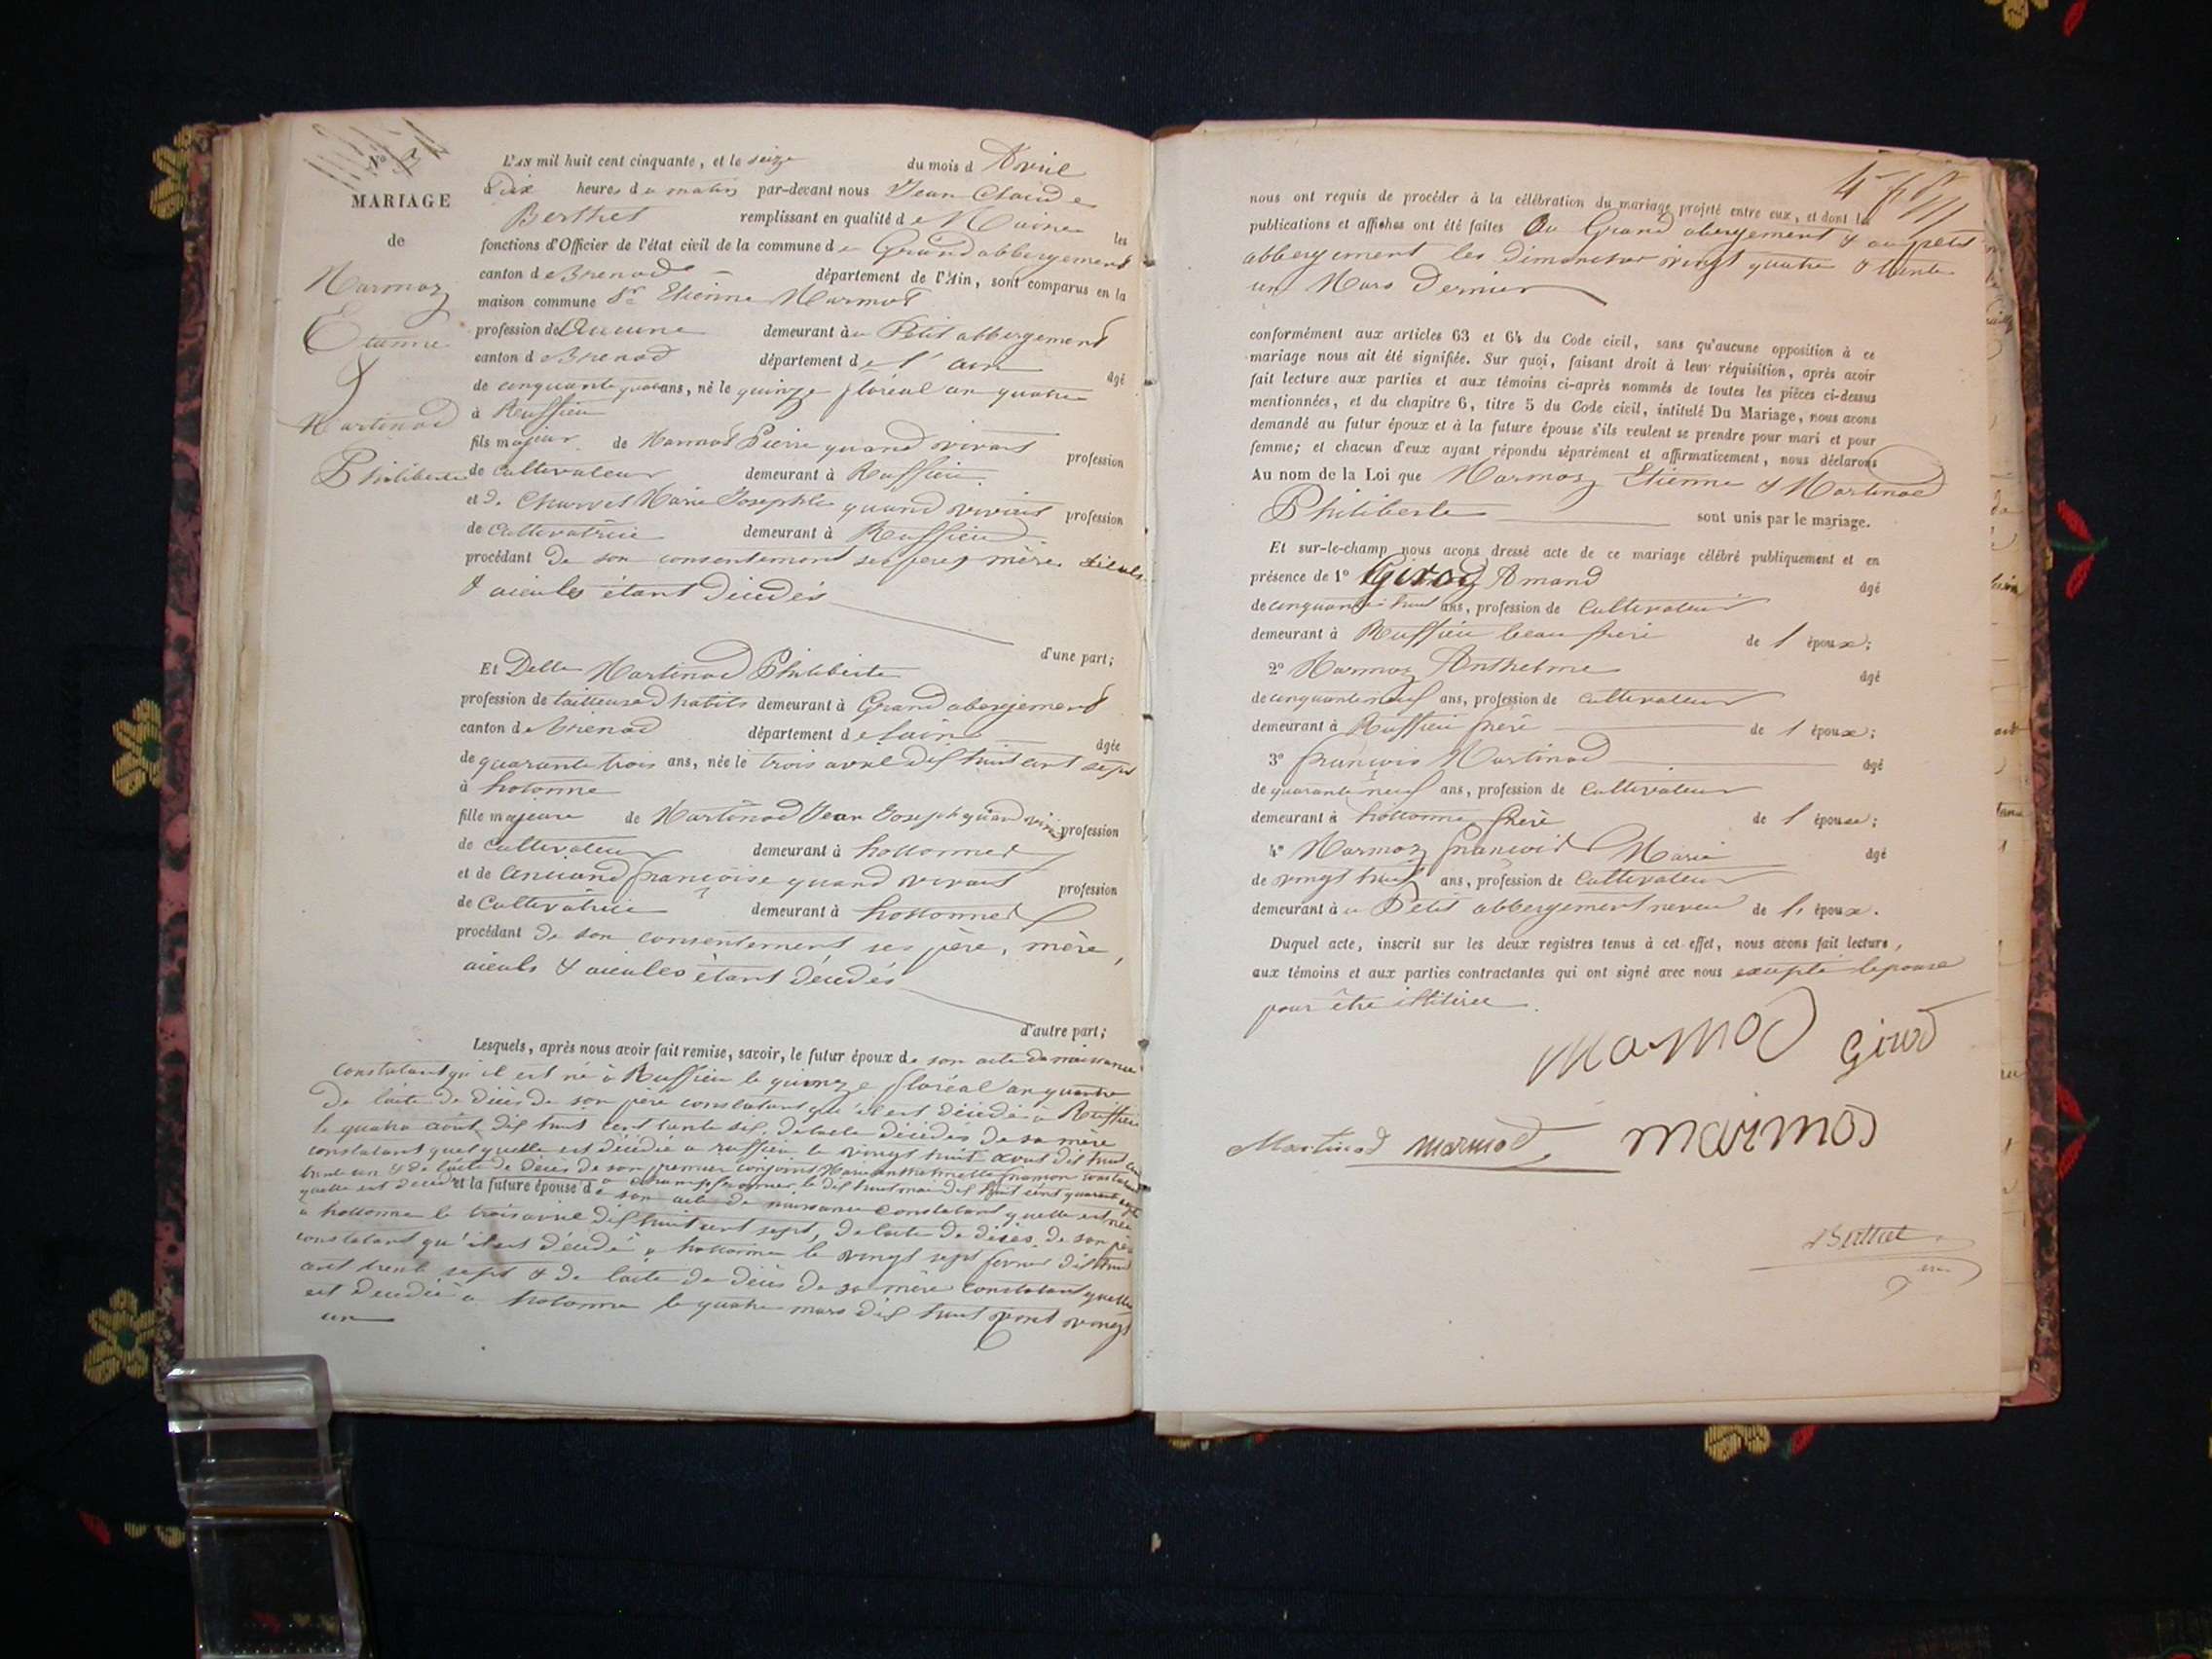 No
MARIAGE
de
Marmoz
Etienne
&
Martinod
Philiberte
L'AN mil huit cent cinquante, et le seize du mois d Avril
à dix heures du matin par-devant nous Jean Claude
Berthet remplissant en qualité de Maire les
fonctions d'Officier de l'état civil de la commune de Grand abbergement
canton de Brenod département de l'Ain, sont comparus en la
maison commune Sr Etienne Marmod
profession de Aucune demeurant au Petit abbergement
canton de Brenod département de l'ain âgé
de cinquante quatre ans, né le quinze floréal an quatre
à Ruffieu
fils majeur de Marmod Pierre quand vivait profession
de cultivateur demeurant à Ruffieu
et de Charvet Marie Josephte quand vivait profession
de cultivatrice demeurant à Ruffieu
procédant de son consentement ses père, mère, aieuls
& aieules étant décédés
d'une part;
Et Delle Martinod Philiberte
profession de tailleuse d'habits demeurant à Grand abergement
canton de Brenod département de lain âgée
de quarante trois ans, née le trois avril dix huit cent sept
à hotonne
fille majeure de Martinod Jean Joseph quand vivait profession
de cultivateur demeurant à hottonnes
et de françoise quand vivait profession
de Cultivatrice demeurant à hottonnes
procédant de son consentement, ses père, mère,
aieuls & aieules étant décédés
d'autre part;
Lesquels, après nous avoir fait remise, savoir, le futur époux de son acte de naissance
constatant qu'il est né à Ruffieu le quinze floréal an quatre
De lacte de décès de son père constatant qu'il est décédé à Ruffieu
le quatre août dix huit cent trente six, de lacte décédés de sa mère
constatant quelquelle est décédée a ruffieu le vingt huit aout dix huit cent
trente un & de lacte de décès de son premier conjoint Marie constatant
quelle est décédée à le dix huit mai dix huit cent quarante
et la future épouse de son acte de naissance constatant quelle est née
à hottonne le trois avril dix huit cent sept, de lacte de décès de son père
constatant qu'il est décédé a hottonne le vingt sept fevrier dix huit
cent trente sept & de lacte de décès de sa mère constatant quelle
est décédée a hotonne le quatre mars dix huit cent vingt
un
nous ont requis de procéder à la célébration du mariage projeté entre eux, et dont les
publications et affiches ont été faites Au Grand abergement & au petit
abbergement les Dimanches vingt quatre & trente
un Mars Dernier
conformément aux articles 63 et 64 du Code civil, sans qu'aucune opposition à ce
mariage nous ait été signifiée. Sur quoi, faisant droit à leur réquisition, après avoir
fait lecture aux parties et aux témoins ci-après nommés de toutes les pièces ci-dessus
mentionnées, et du chapitre 6, titre 5 du Code civil, intitulé Du Mariage, nous avons
demandé au futur époux et à la future épouse s'ils veulent se prendre pour mari et pour
femme; et chacun d'eux ayant répondu séparément et affirmativement, nous déclarons
Au nom de la Loi que Marmoz Etienne & Martinod
Philiberte sont unis par le mariage.
Et sur-le-champ nous avons dressé acte de ce mariage célébré publiquement et en
présence de 1º Girod Amand âgé
de cinquante huit ans, profession de Cultivateur
demeurant à Ruffieu beau frère de l'époux;
2º Marmoz Anthelme âgé
de cinquante neuf ans, profession de cultivateur
demeurant à Ruffieu frère de l époux;
3º françois Martinod âgé
de quarante neuf ans, profession de Cultivateur
demeurant à hottonne frère de l épouse;
4º Marmoz françois Marie âgé
de vingt huit ans, profession de Cultivateur
demeurant au Petit abbergement neveu de l'époux.
Duquel acte, inscrit sur les deux registres tenus à cet effet, nous avons fait lecture,
aux témoins et aux parties contractantes qui ont signé avec nous excepté lepouse
pour être illitiree
Marmod Girod
Martinod marmod marmod
Berthet